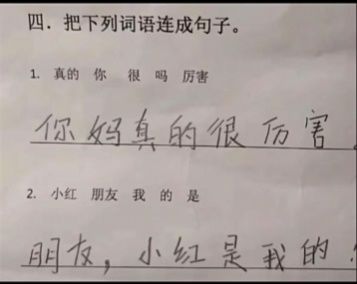 四．把下列词语连成句子。
1. 真的 你 很 吗 厉害
你妈真的很历害。
2. 小红 朋友 我 的 是
朋友，小红是我的！